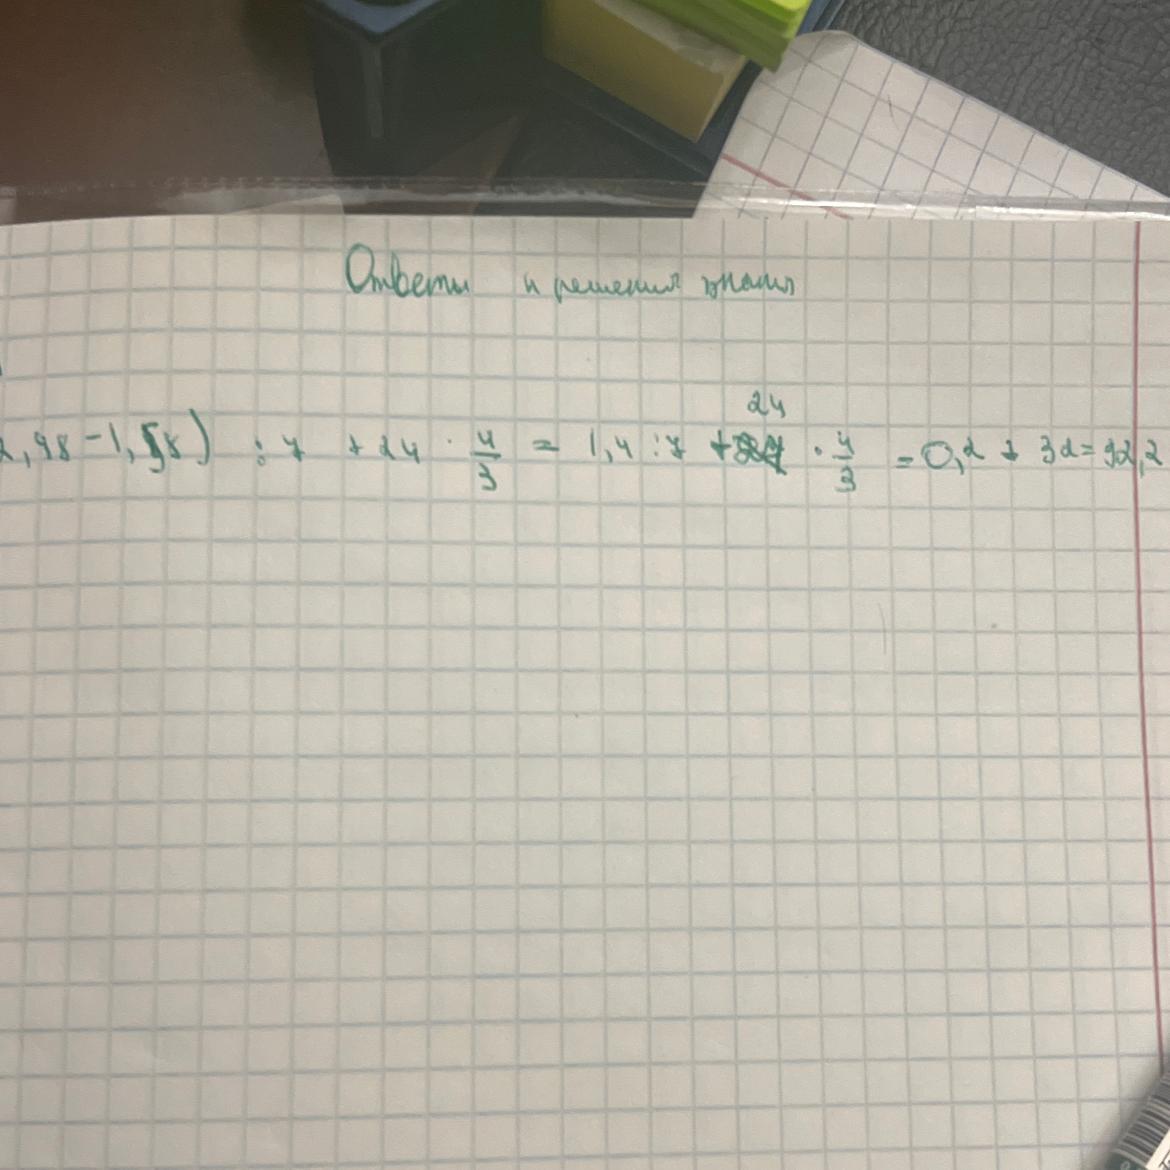 Ответы и решения
2,98-1,58) : 7 + 24 · 4/3 = 1,4 : 7 + 24 · 4/3 = 0,2 + 32 = 32,2